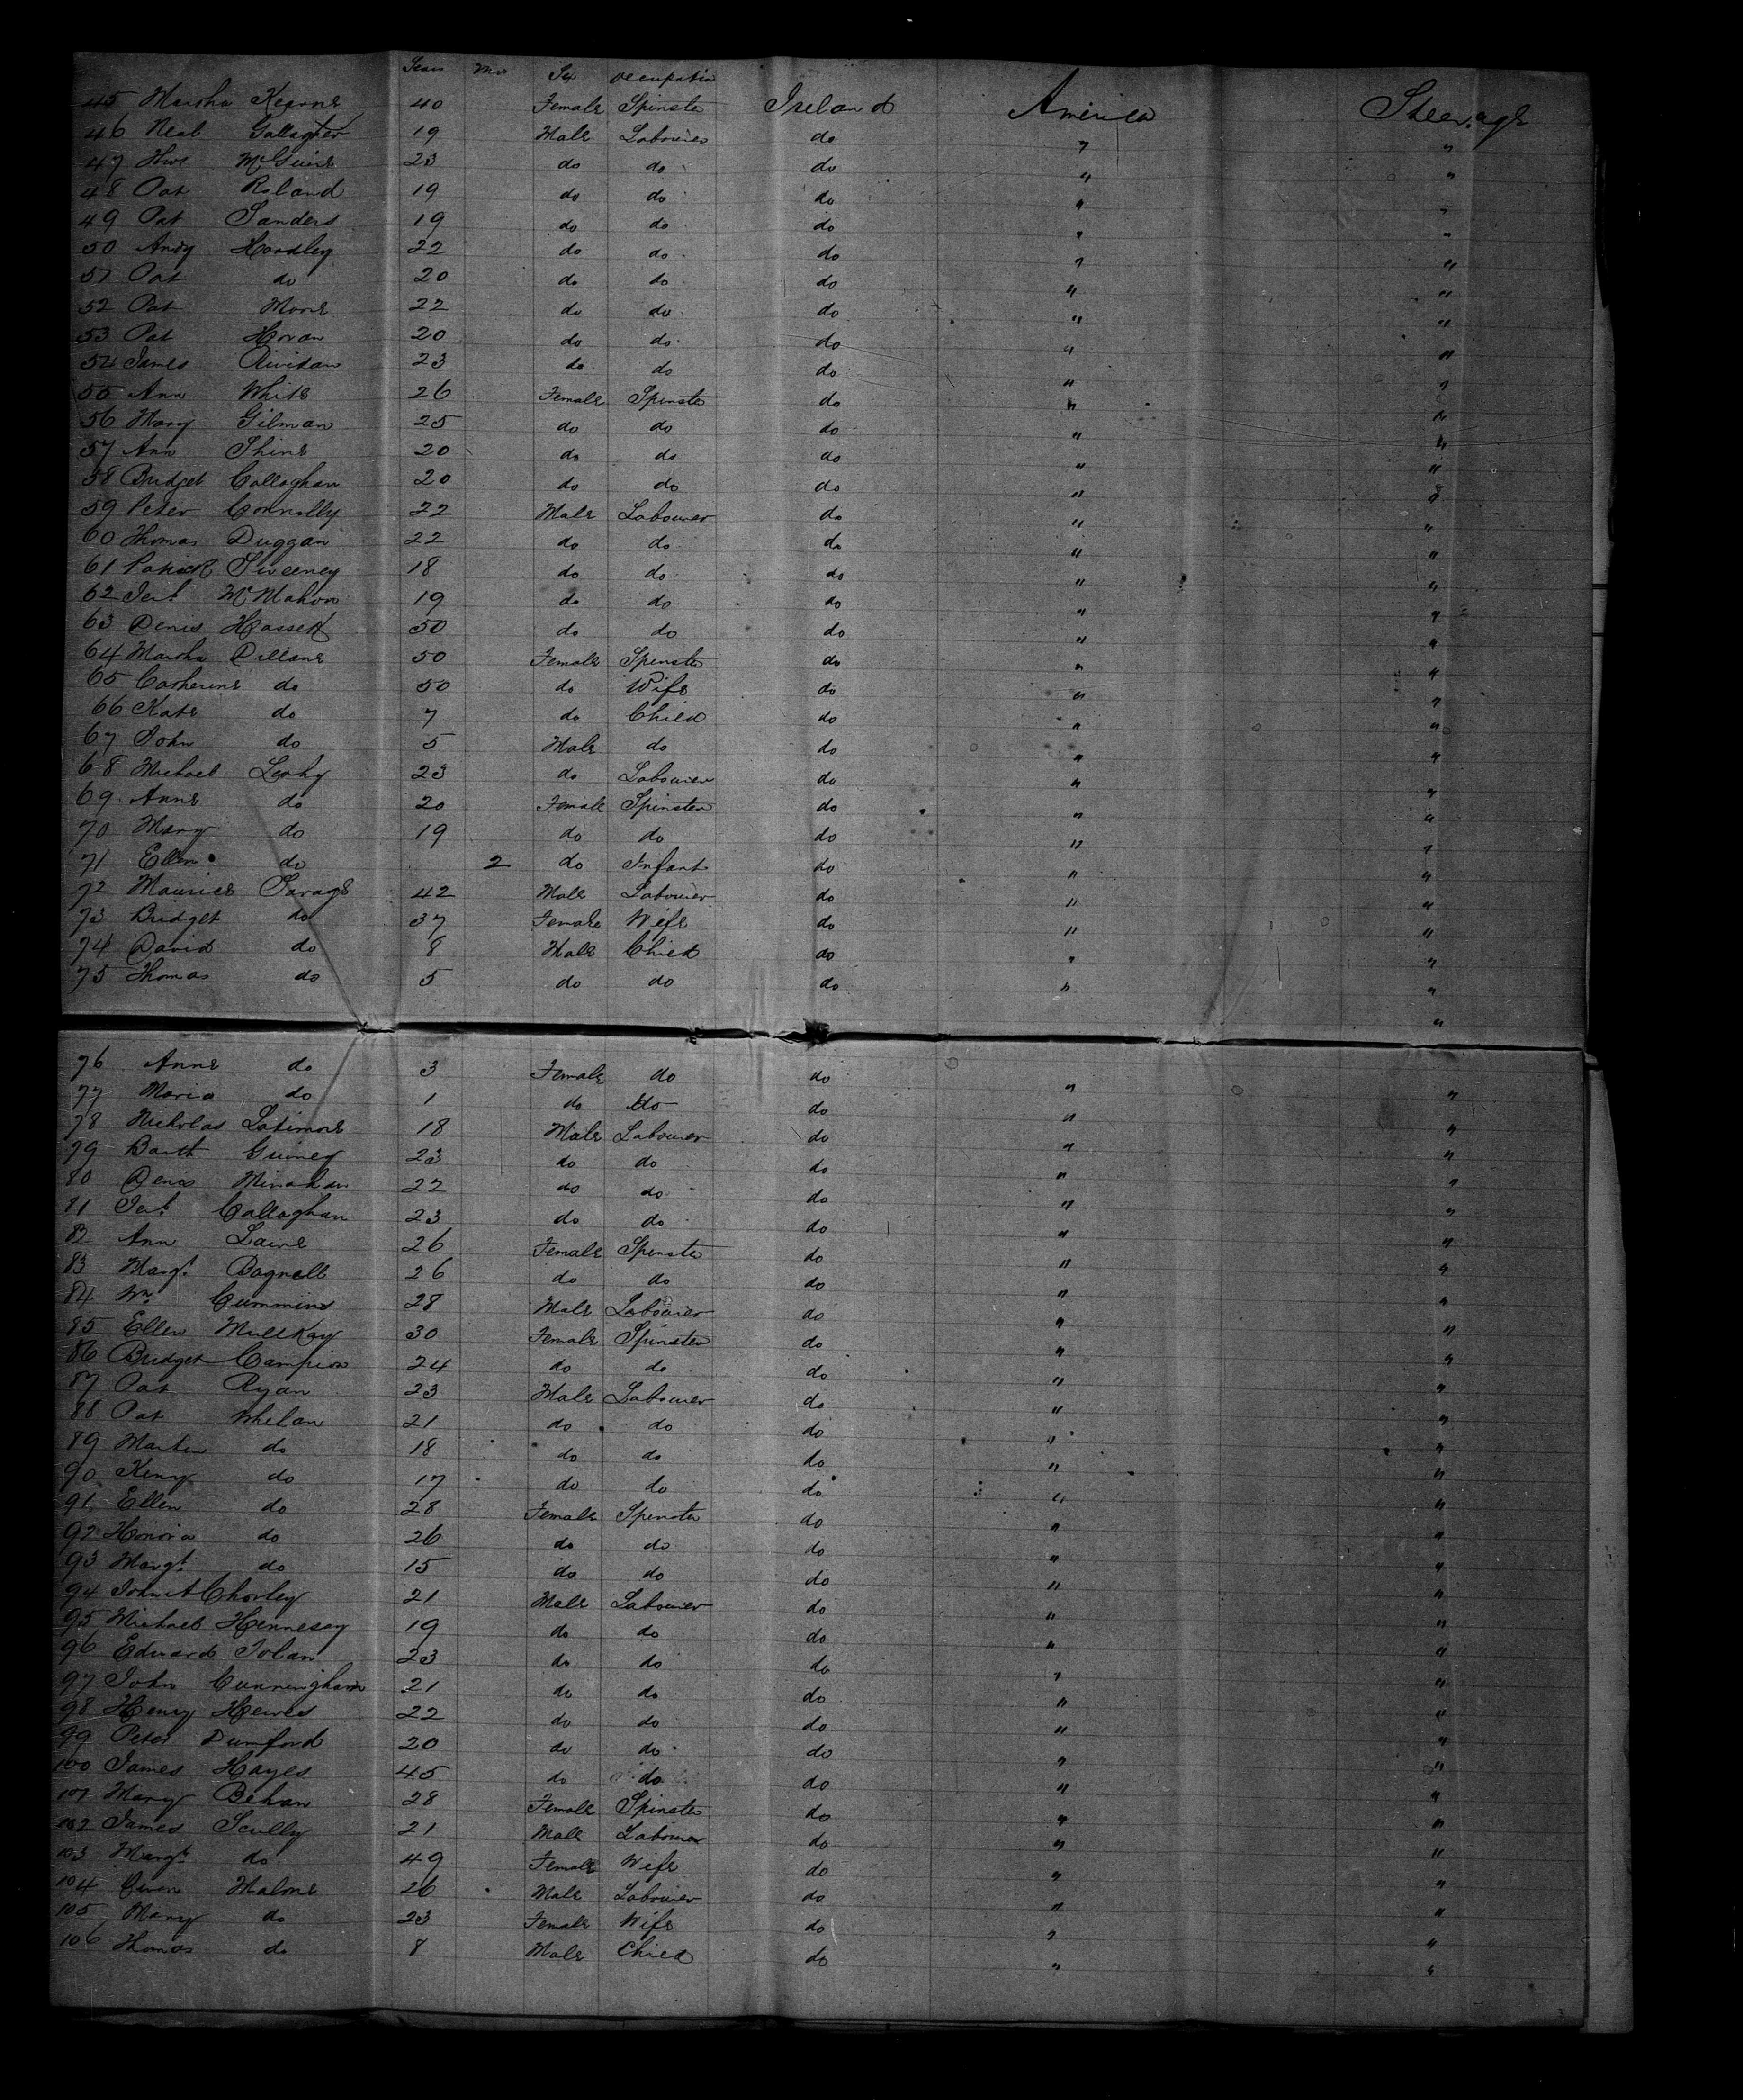 Years Mos Sex occupation
45 Martha Kearns 40 Female Spinster Ireland America Steerage
46 Neal Gallagher 19 Male Labourer do " "
47 Thos McGuire 23 do do do " "
48 Pat Roland 19 do do do " "
49 Pat Sanders 19 do do do " "
50 Andy Hoadley 22 do do do " "
51 Pat do 20 do do do " "
52 Pat Mons 22 do do do " "
53 Pat Horan 20 do do do " "
54 James 23 do do do " "
55 Ann White 26 Female Spinster do " "
56 Mary Gilman 25 do do do " "
57 Ann Shine 20 do do do " "
58 Bridget Callaghan 20 do do do " "
59 Peter Connolly 22 Male Labourer do " "
60 Thomas Duggan 22 do do do " "
61 Patrick Sweeney 18 do do do " "
62 Jert McMahon 19 do do do " "
63 Denis Hassett 50 do do do " "
64 Martha Dillane 50 Female Spinster do " "
65 Catherine do 50 do Wife do " "
66 Kate do 7 do Child do " "
67 John do 5 Male do do " "
68 Michael Leahy 23 do Labourer do " "
69 Anne do 20 Female Spinster do " "
70 Mary do 19 do do do " "
71 Ellen do 2 do Infant do " "
72 Maurice Savage 42 Male Labourer do " "
73 Bridget do 37 Female Wife do " "
74 David do 8 Male Child do " "
75 Thomas do 5 do do do " "
76 Anne do 3 Female do do " "
77 Maria do 1 do do do " "
78 Nicholas Latimore 18 Male Labourer do " "
79 Barth Guiney 23 do do do " "
80 Denis Minahan 22 do do do " "
81 Jert Callaghan 23 do do do " "
82 Ann Lawe 26 Female Spinster do " "
83 Margt Bagnell 26 do do do " "
84 Wm Cummins 28 Male Labourer do " "
85 Ellen Mullkay 30 Female Spinster do " "
86 Bridget Campion 24 do do do " "
87 Pat Ryan 23 Male Labourer do " "
88 Pat Whelan 21 do do do " "
89 Martin do 18 do do do " "
90 Keny do 17 do do do " "
91 Ellen do 28 Female Spinster do " "
92 Honora do 26 do do do " "
93 Margt do 15 do do do " "
94 John A Chorley 21 Male Labourer do " "
95 Michael Hennesey 19 do do do " "
96 Edward Tolan 23 do do do " "
97 John Cunningham 21 do do do " "
98 Henry Hewes 22 do do do " "
99 Peter Dumford 20 do do do " "
100 James Hayes 45 do do do " "
101 Mary Behan 28 Female Spinster do " "
102 James Scully 21 Male Labourer do " "
103 Margt do 49 Female Wife do " "
104 Owen Malone 26 Male Labourer do " "
105 Mary do 23 Female Wife do " "
106 Thomas do 8 Male Child do " "